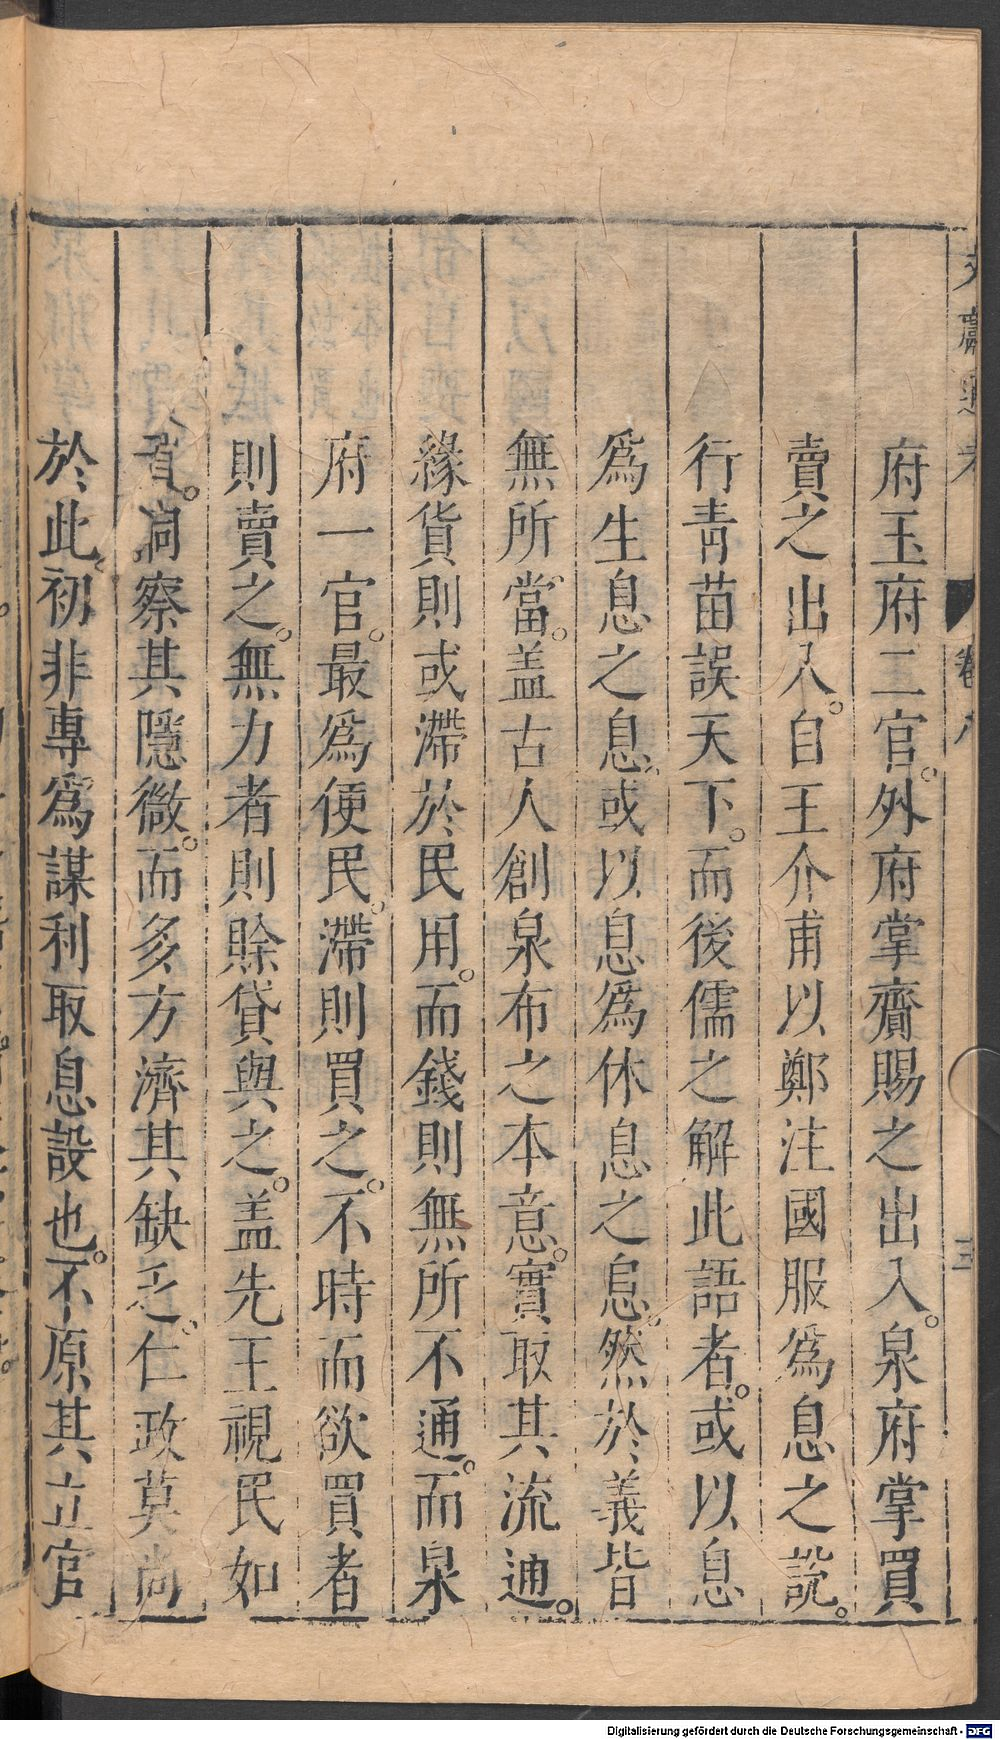 文獻通考 卷八 三
府玉府二官。外府掌齎賜之出入。泉府掌買
賣之出入。自王介甫以鄭注國服爲息之說。
行青苗誤天下。而後儒之解此語者。或以息
爲生息之息。或以息爲休息之息。然於義皆
無所當。盖古人創泉布之本意。實取其流通。
緣貨則或滯於民用。而錢則無所不通。而泉
府一官。最爲便民。滯則買之。不時而欲買者
則賣之。無力者則賖貸與之。盖先王視民如
子。洞察其隱微。而多方濟其缺乏。仁政莫尚
於此。初非專爲謀利取息設也。不原其立官
Digitalisierung gefördert durch die Deutsche Forschungsgemeinschaft - DFG